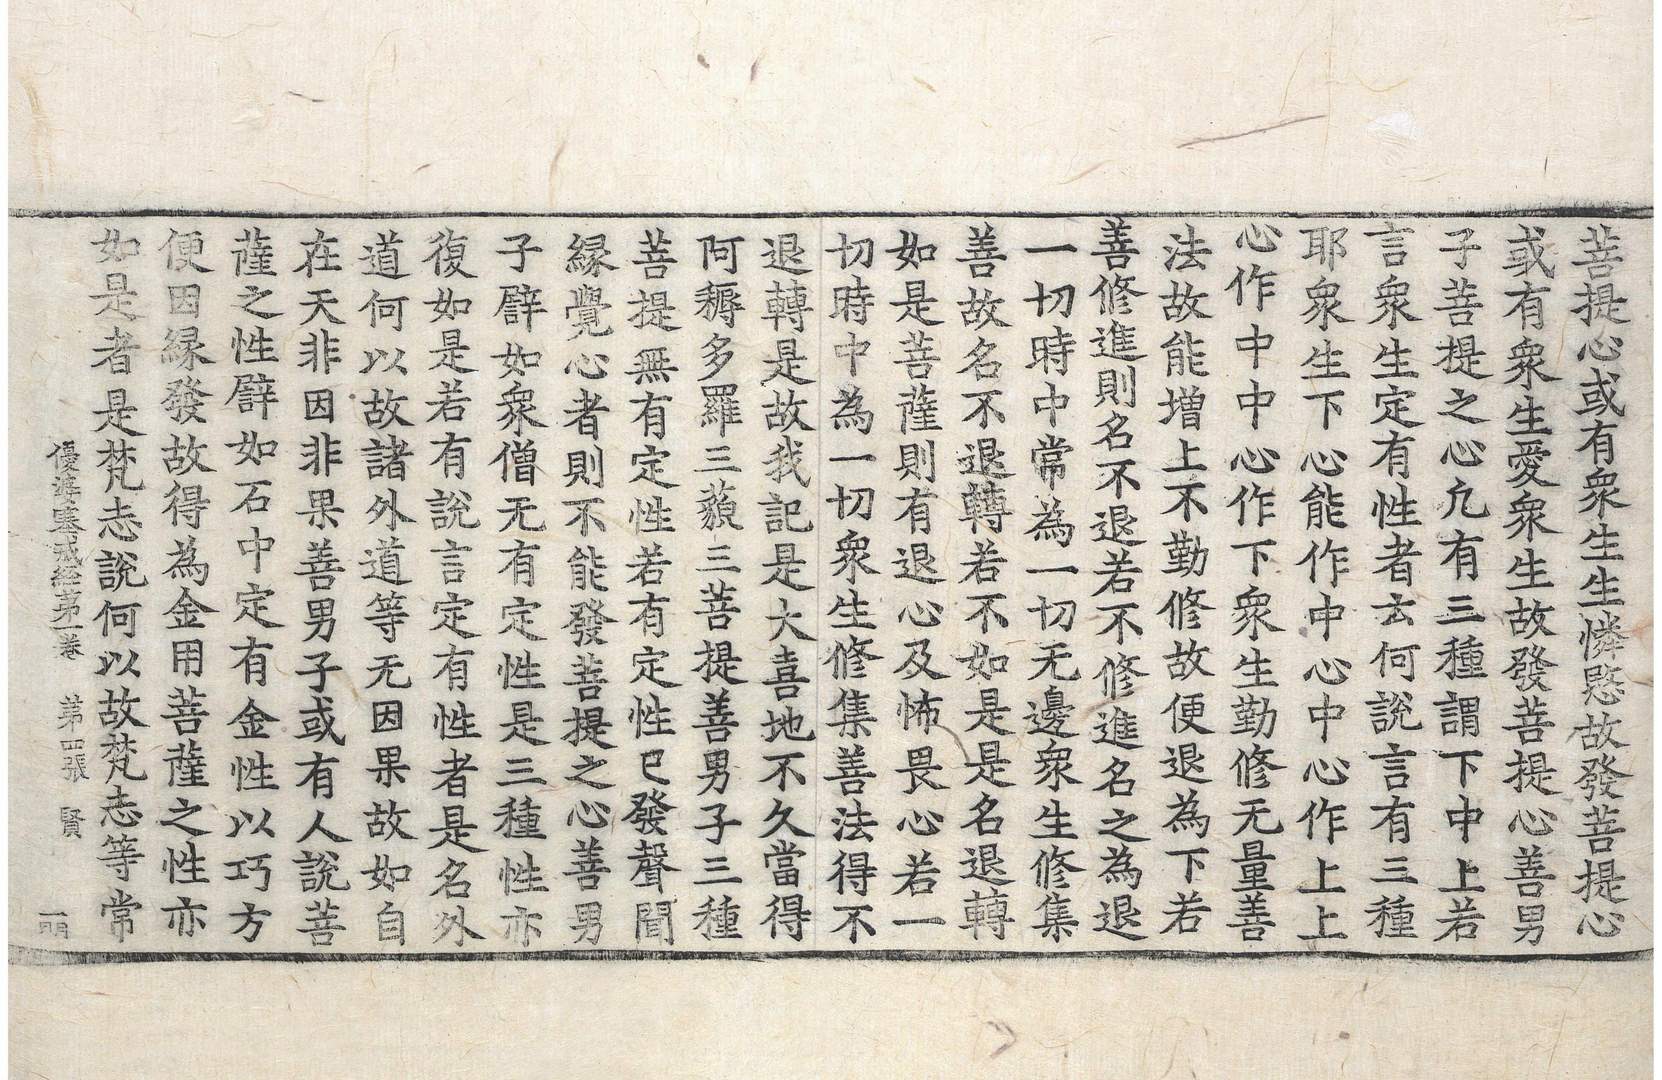 菩提心或有衆生生憐愍故發菩提心
或有衆生愛衆生故發菩提心善男
子菩提之心凢有三種謂下中上若
言衆生定有性者云何說言有三種
耶衆生下心能作中心中心作上上
心作中中心作下衆生勤修无量善
法故能增上不勤修故便退為下若
善修進則名不退若不修進名之為退
一切時中常為一切无邊衆生修集
善故名不退轉若不如是是名退轉
如是菩薩則有退心及怖畏心若一
切時中為一切衆生修集善法得不
退轉是故我記是大喜地不久當得
阿耨多羅三藐三菩提善男子三種
菩提無有定性若有定性已發聲聞
緣覺心者則不能發菩提之心善男
子譬如衆僧无有定性是三種性亦
復如是若有說言定有性者是名外
道何以故諸外道等无因果故如自
在天非因非果善男子或有人說菩
薩之性譬如石中定有金性以巧方
便因緣發故得為金用菩薩之性亦
如是者是梵志說何以故梵志等常
優婆塞戒経苐一卷 苐四張 賢